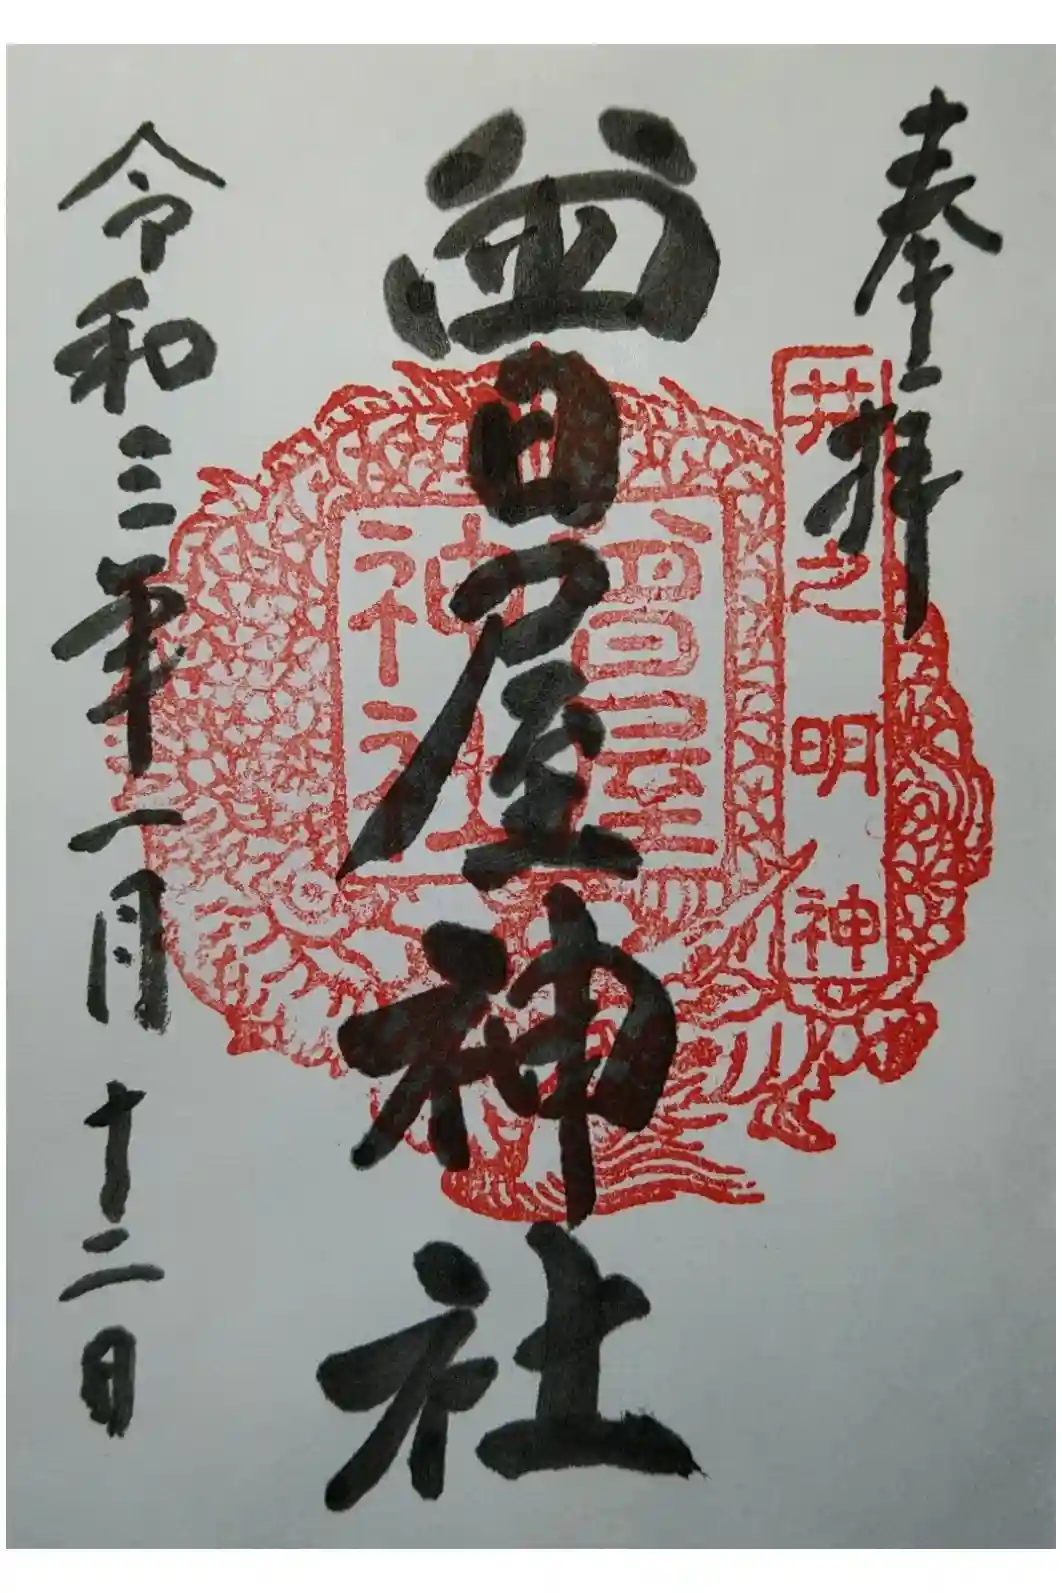 奉拝
井之明神
曽屋神社
曽屋
神社
令和三年一月十二日